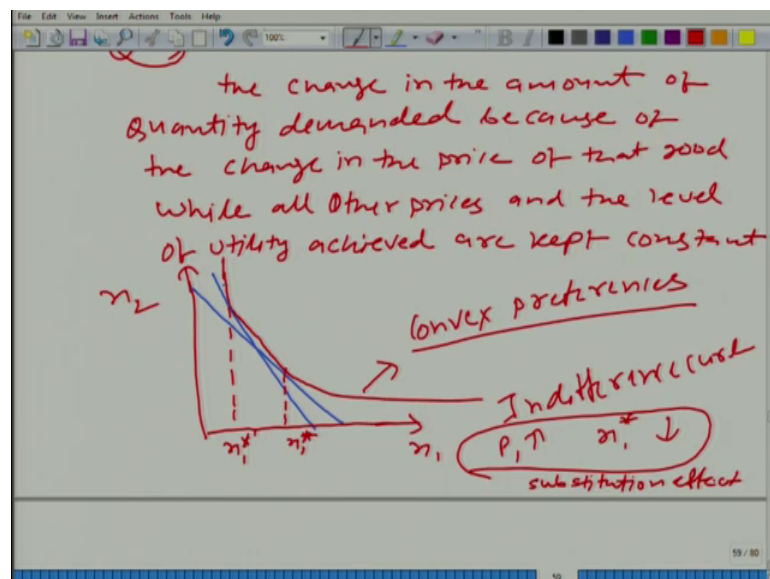 File Edit View Insert Actions Tools Help
100%
B I
the change in the amount of
quantity demanded because of
the change in the price of that good
while all other prices and the level
of utility achieved are kept constant
x₂
Convex preferences
Indifference curve
P₁ ↑ x₁* ↓
x₁*' x₁* x₁
substitution effect
59 / 80
59